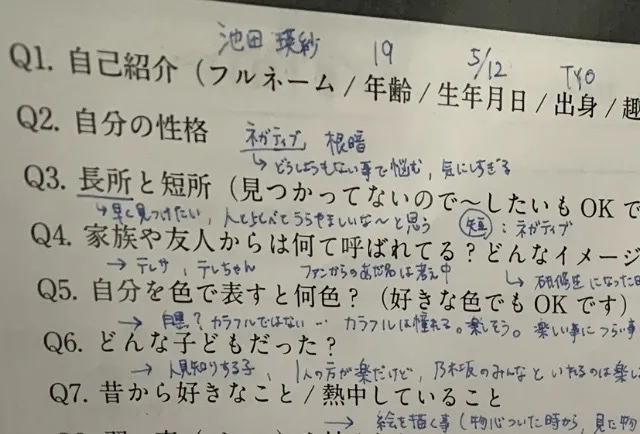 池田 瑛紗 19 5/12 TYO
Q1. 自己紹介（フルネーム / 年齢 / 生年月日 / 出身 / 趣
Q2. 自分の性格 ネガティブ, 根暗
→どうしようもない事で悩む, 気にしすぎる
Q3. 長所と短所（見つかってないので～したいも OK で
→早く見つけたい, 人と比べてうらやましいな～と思う 短：ネガティブ
Q4. 家族や友人からは何て呼ばれてる？どんなイメージ
→テレサ, テレちゃん ファンからのあだ名は考え中 →研修生になった
Q5. 自分を色で表すと何色？（好きな色でも OK です）
→白黒？カラフルではない… カラフルは憧れる。楽しそう。楽しい事につらい事
Q6. どんな子どもだった？
→人見知りする子, 1人の方が楽だけど, 乃木坂のみんなといれるのは楽し
Q7. 昔から好きなこと / 熱中していること
→絵を描く事（物心ついた時から, 見た物